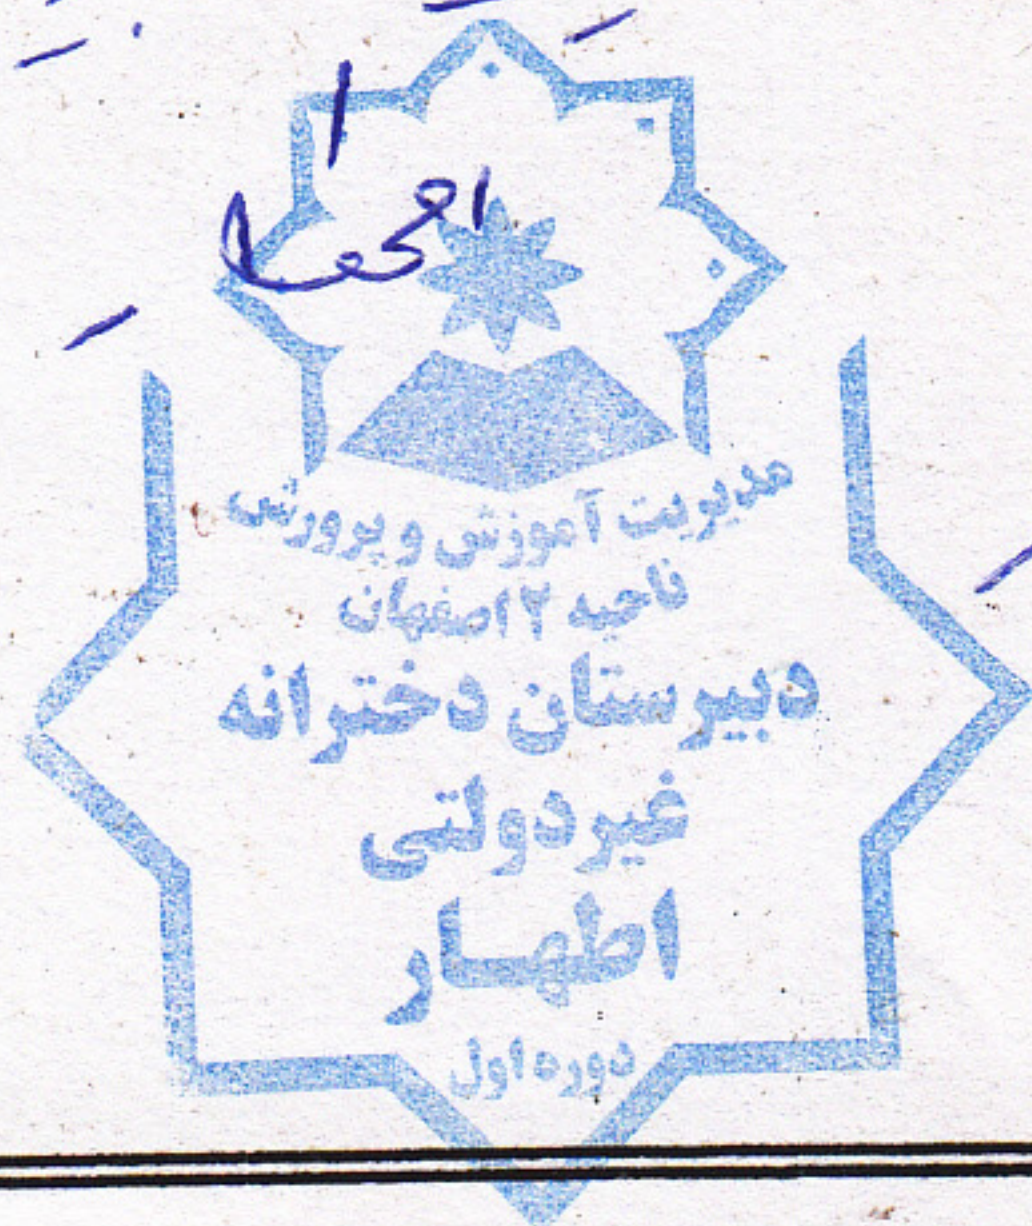 مدیریت آموزش و پرورش
ناحیه ۲ اصفهان
دبیرستان دخترانه
غیردولتی
اطهار
دوره اول